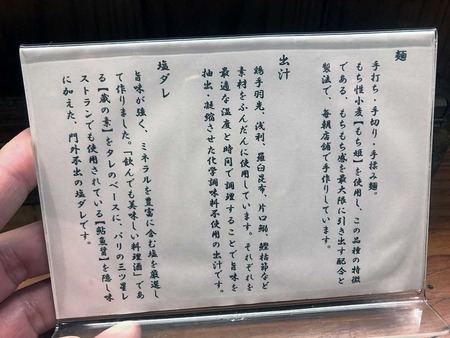 麺
手打ち・手切り・手揉み麺。
もち性小麦【もち姫】を使用し、この品種の特徴
である、もちもち感を最大限に引き出す配合と
製法で、毎朝店舗で手作りしています。
出汁
鶏手羽先、浅利、羅臼昆布、片口鰯、鰹枯節など
素材をふんだんに使用しています。それぞれを
最適な温度と時間で調理することで旨味を
抽出・凝縮させた化学調味料不使用の出汁です。
塩ダレ
旨味が強く、ミネラルを豊富に含む塩を厳選し
て作りました。「飲んでも美味しい料理酒」であ
る【蔵の素】をタレのベースに、パリの三ツ星レ
ストランでも使用されている【鮎魚醤】を隠し味
に加えた、門外不出の塩ダレです。